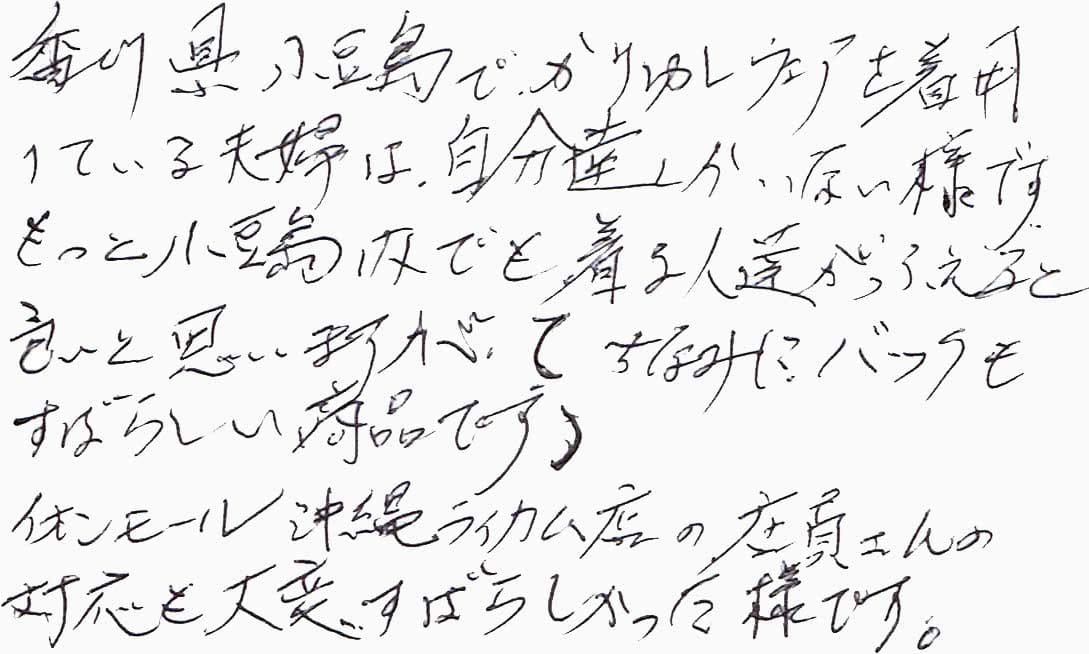 香川県小豆島で、かりゆしウェアを着用
している夫婦は、自分達しかいない様です
もっと小豆島内でも着る人達がふえると
良いと思いますが、(ちなみに、バックも
すばらしい商品です)
イオンモール沖縄ライカム店の店員さんの
対応も大変すばらしかった様です。